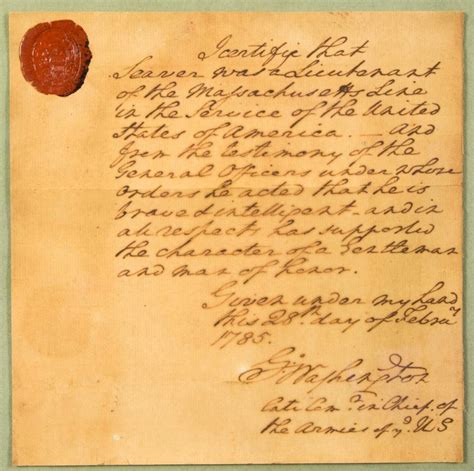 I certifie that
Seaver was a Lieutenant
of the Massachusetts Line
in the Service of the United
States of America. — And
from the testimony of the
General Officers under whose
orders he acted that he is
brave & intelligent — and in
all respects has supported
the character of a Gentleman
and man of honor.
Given under my hand
this 28th day of Febry
1785.
Go Washington
late Comr in Chief of
the Armies of ye U S